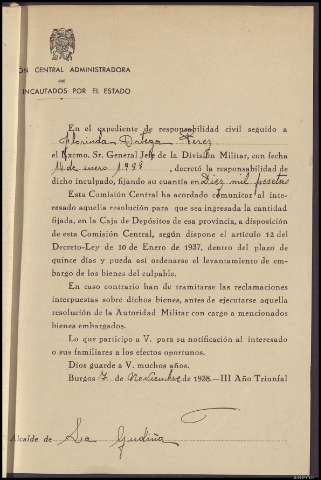 ÓN CENTRAL ADMINISTRADORA
DE
INCAUTADOS POR EL ESTADO
En el expediente de responsabilidad civil seguido a
Florinda Ortega Pérez
el Excmo. Sr. General Jefe de la División Militar, con fecha
14 de enero 1938, decretó la responsabilidad de
dicho inculpado, fijando su cuantía en Diez mil pesetas
Esta Comisión Central ha acordado comunitor al inte-
resado aquella resolución para que sea ingresada la cantidad
fijada, en la Caja de Depósitos de esa provincia, a disposición
de esta Comisión Central, según dispone el artículo 12 del
Decreto-Ley de 10 de Enero de 1937, dentro del plazo de
quince días y pueda así ordenarse el levantamiento de em-
bargo de los bienes del culpable.
En caso contrario han de tramitarse las reclamaciones
interpuestas sobre dichos bienes, antes de ejecutarse aquella
resolución de la Autoridad Militar con cargo a mencionados
bienes embargados.
Lo que participo a V. para su notificación al interesado
o sus familiares a los efectos oportunos.
Dios guarde a V. muchos años.
Burgos 7 de Noviembre de 1938.—III Año Triunfal
Alcalde de La Gudiña